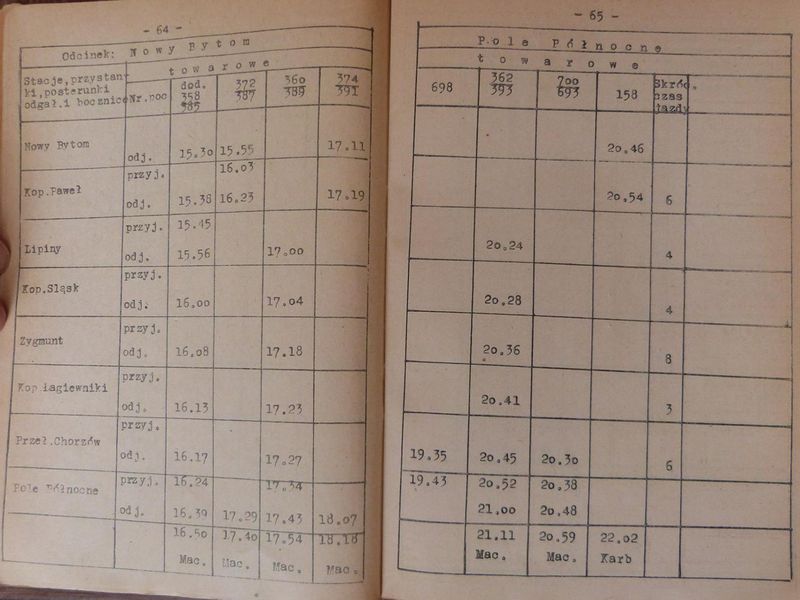 - 64 -
Odcinek: Nowy Bytom
towarowe
Stacje,przystan ki,posterunki odgał.i bocznice Nr.poc dod. 358 385 372 387 360 389 374 391
Nowy Bytom odj. 15.30 15.55 17.11
Kop.Paweł przyj. 16.03
odj. 15.38 16.23 17.19
Lipiny przyj. 15.45
odj. 15.56 17.00
Kop.Sląsk przyj.
odj. 16.00 17.04
Zygmunt przyj.
odj. 16.08 17.18
Kop.Łagiewniki przyj.
odj. 16.13 17.23
Przeł.Chorzów przyj.
odj. 16.17 17.27
Pole Północne przyj. 16.24 17.34
odj. 16.39 17.29 17.43 18.07
16.50 17.40 17.54 18.18
Mac. Mac. Mac. Mac.
- 65 -
Pole Północne
towarowe
698 362 393 700 693 158 Skróc. czas jazdy
20.46
20.54 6
20.24 4
20.28 4
20.36 8
20.41 3
19.35 20.45 20.30 6
19.43 20.52 20.38
21.00 20.48
21.11 20.59 22.02
Mac. Mac. Karb